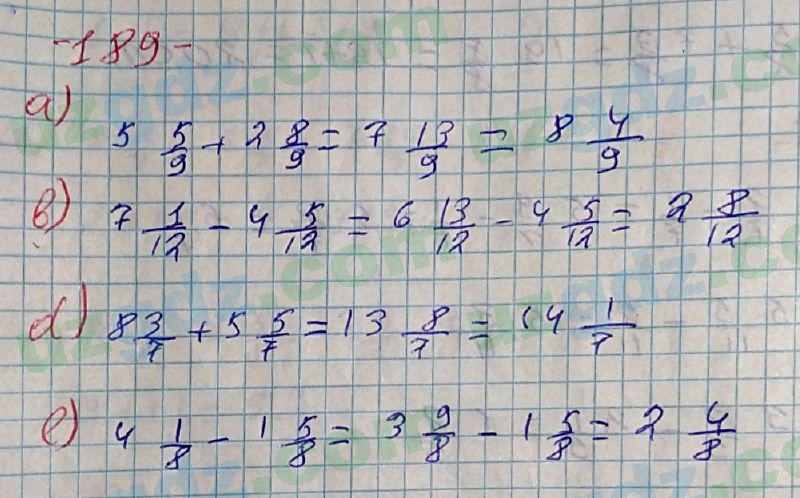 -189-
a)
5 5/9 + 2 8/9 = 7 13/9 = 8 4/9
b) 7 1/12 - 4 5/12 = 6 13/12 - 4 5/12 = 2 8/12
d) 8 3/7 + 5 5/7 = 13 8/7 = 14 1/7
e) 4 1/8 - 1 5/8 = 3 9/8 - 1 5/8 = 2 4/8